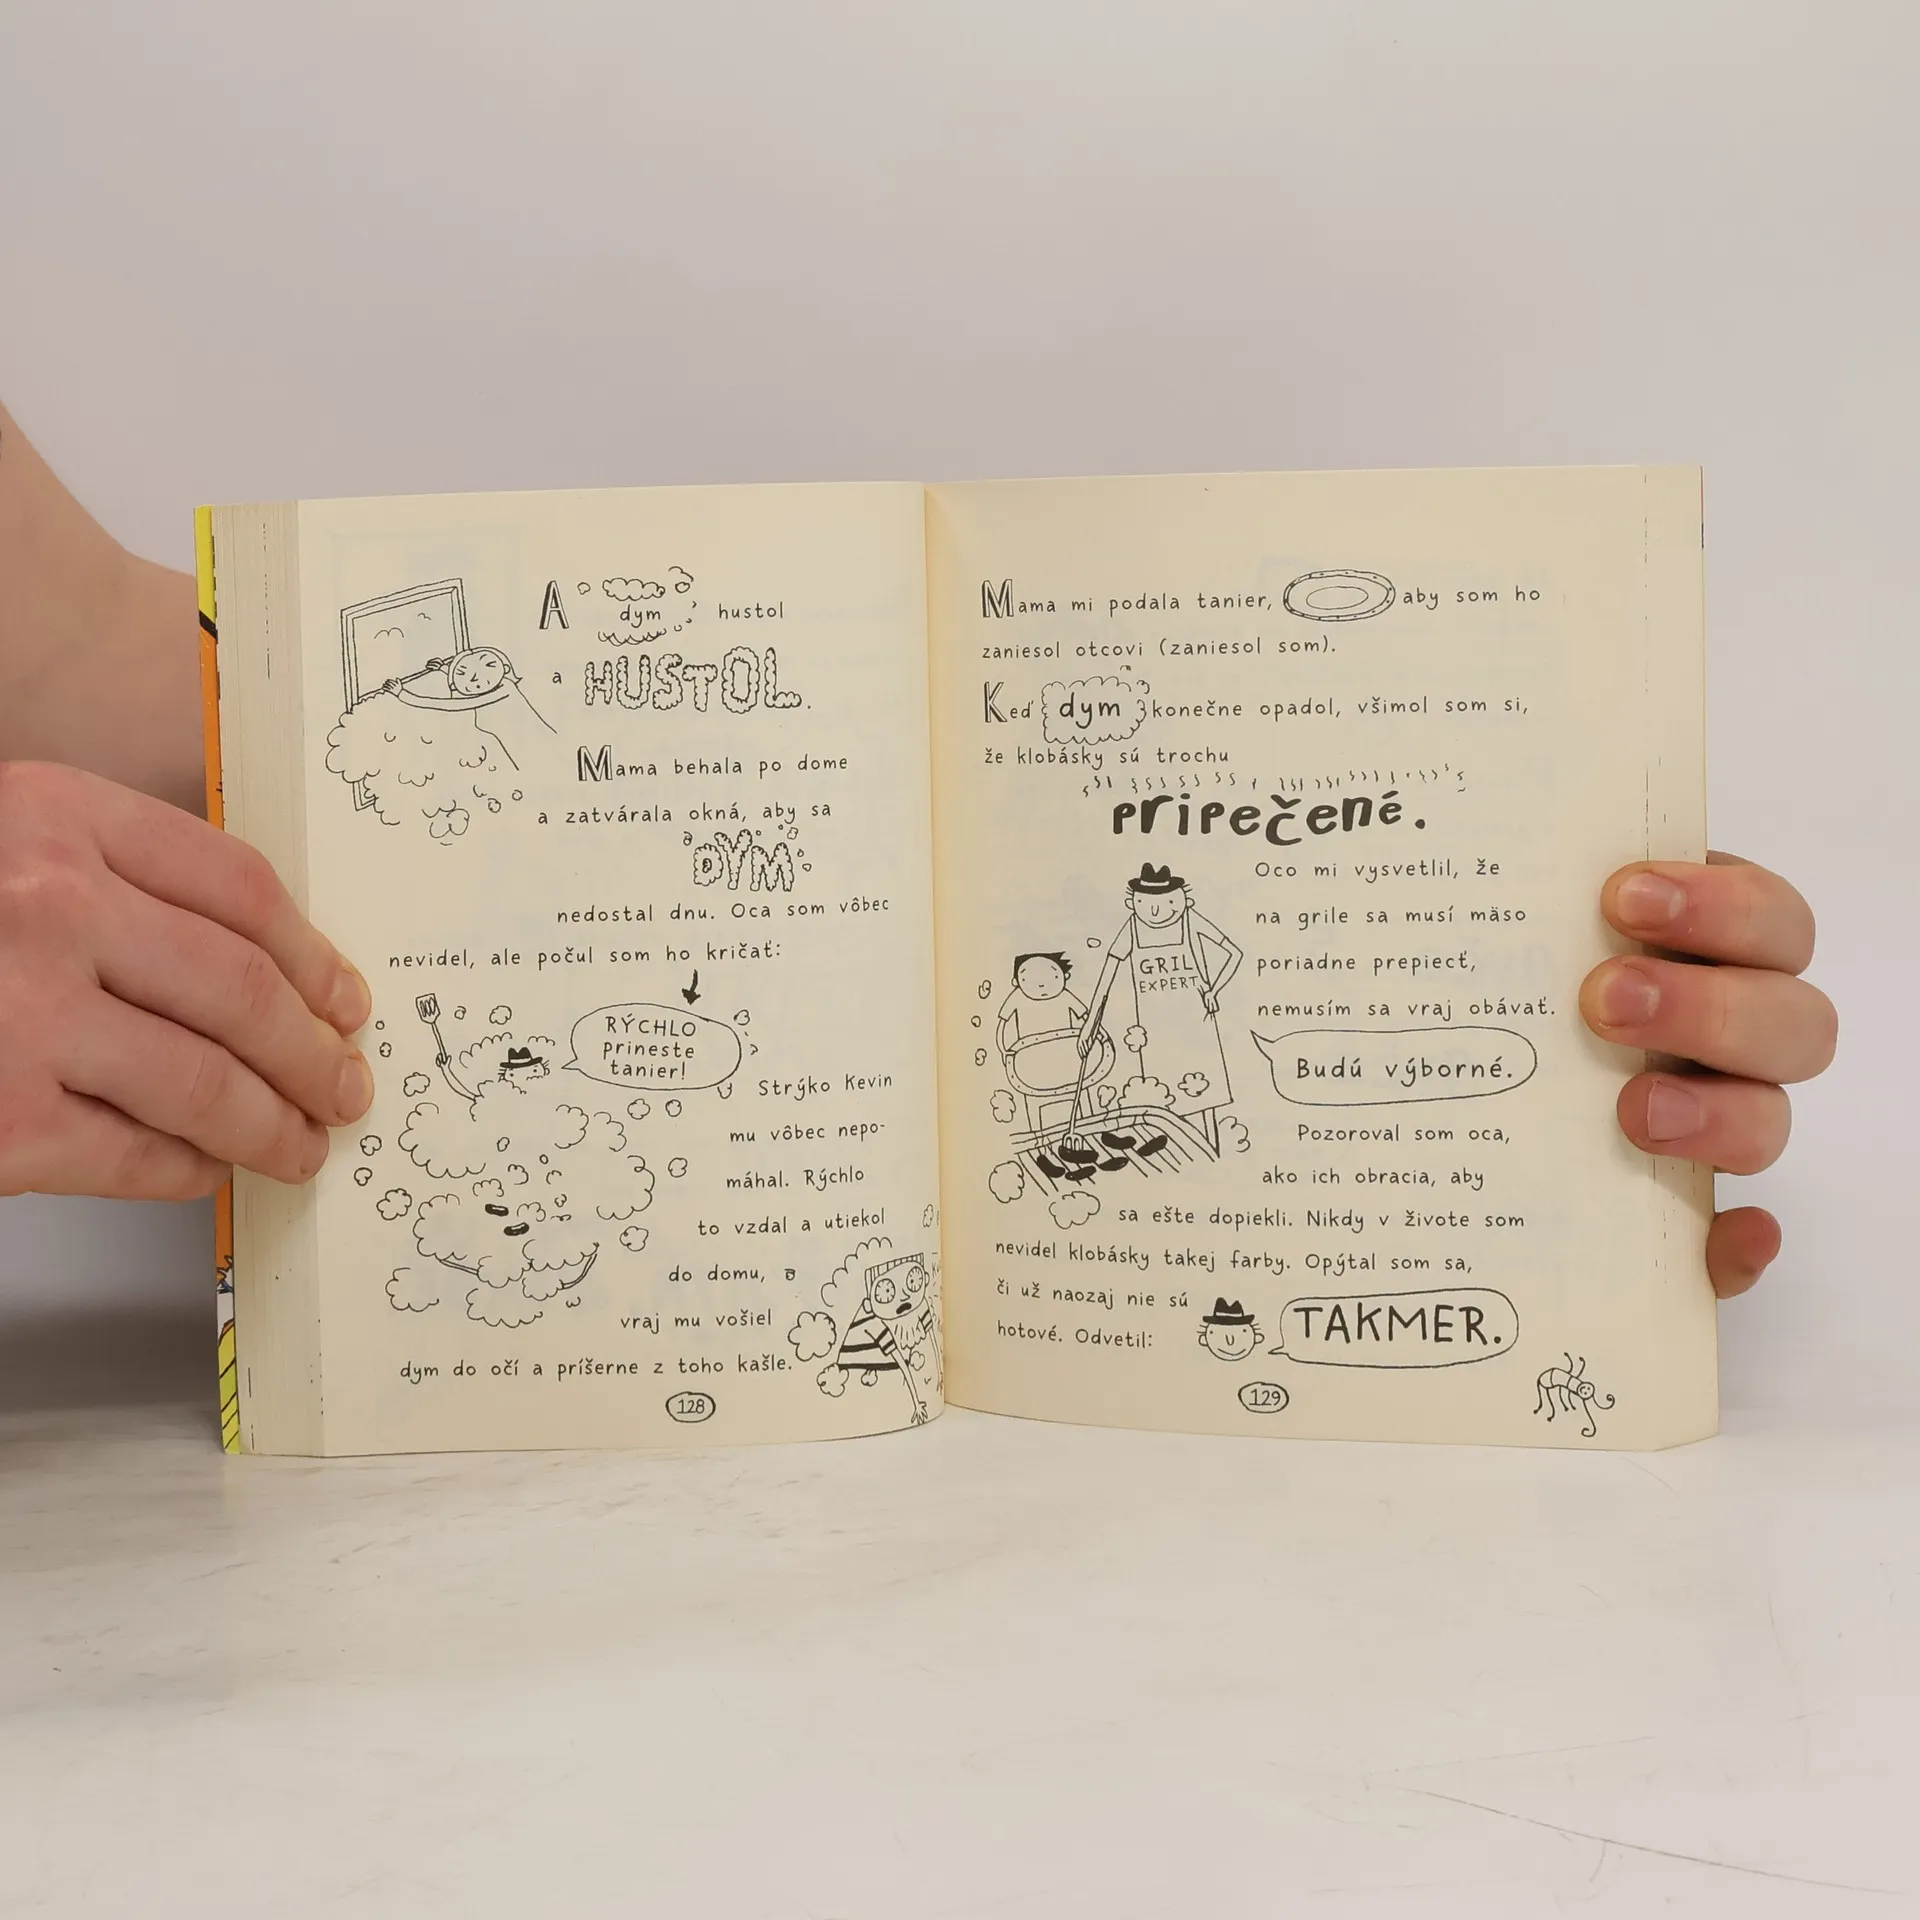 A dym hustol
a HUSTOL.
Mama behala po dome
a zatvárala okná, aby sa
DYM
nedostal dnu. Oca som vôbec
nevidel, ale počul som ho kričať:
RÝCHLO
prineste
tanier!
Strýko Kevin
mu vôbec nepo-
máhal. Rýchlo
to vzdal a utiekol
do domu, a
vraj mu vošiel
dym do očí a príšerne z toho kašle.
128
Mama mi podala tanier, aby som ho
zaniesol otcovi (zaniesol som).
Keď dym konečne opadol, všimol som si,
že klobásky sú trochu
pripečené.
Oco mi vysvetlil, že
na grile sa musí mäso
poriadne prepiecť,
nemusím sa vraj obávať.
GRIL
EXPERT
Budú výborné.
Pozoroval som oca,
ako ich obracia, aby
sa ešte dopiekli. Nikdy v živote som
nevidel klobásky takej farby. Opýtal som sa,
či už naozaj nie sú
hotové. Odvetil:
TAKMER.
129